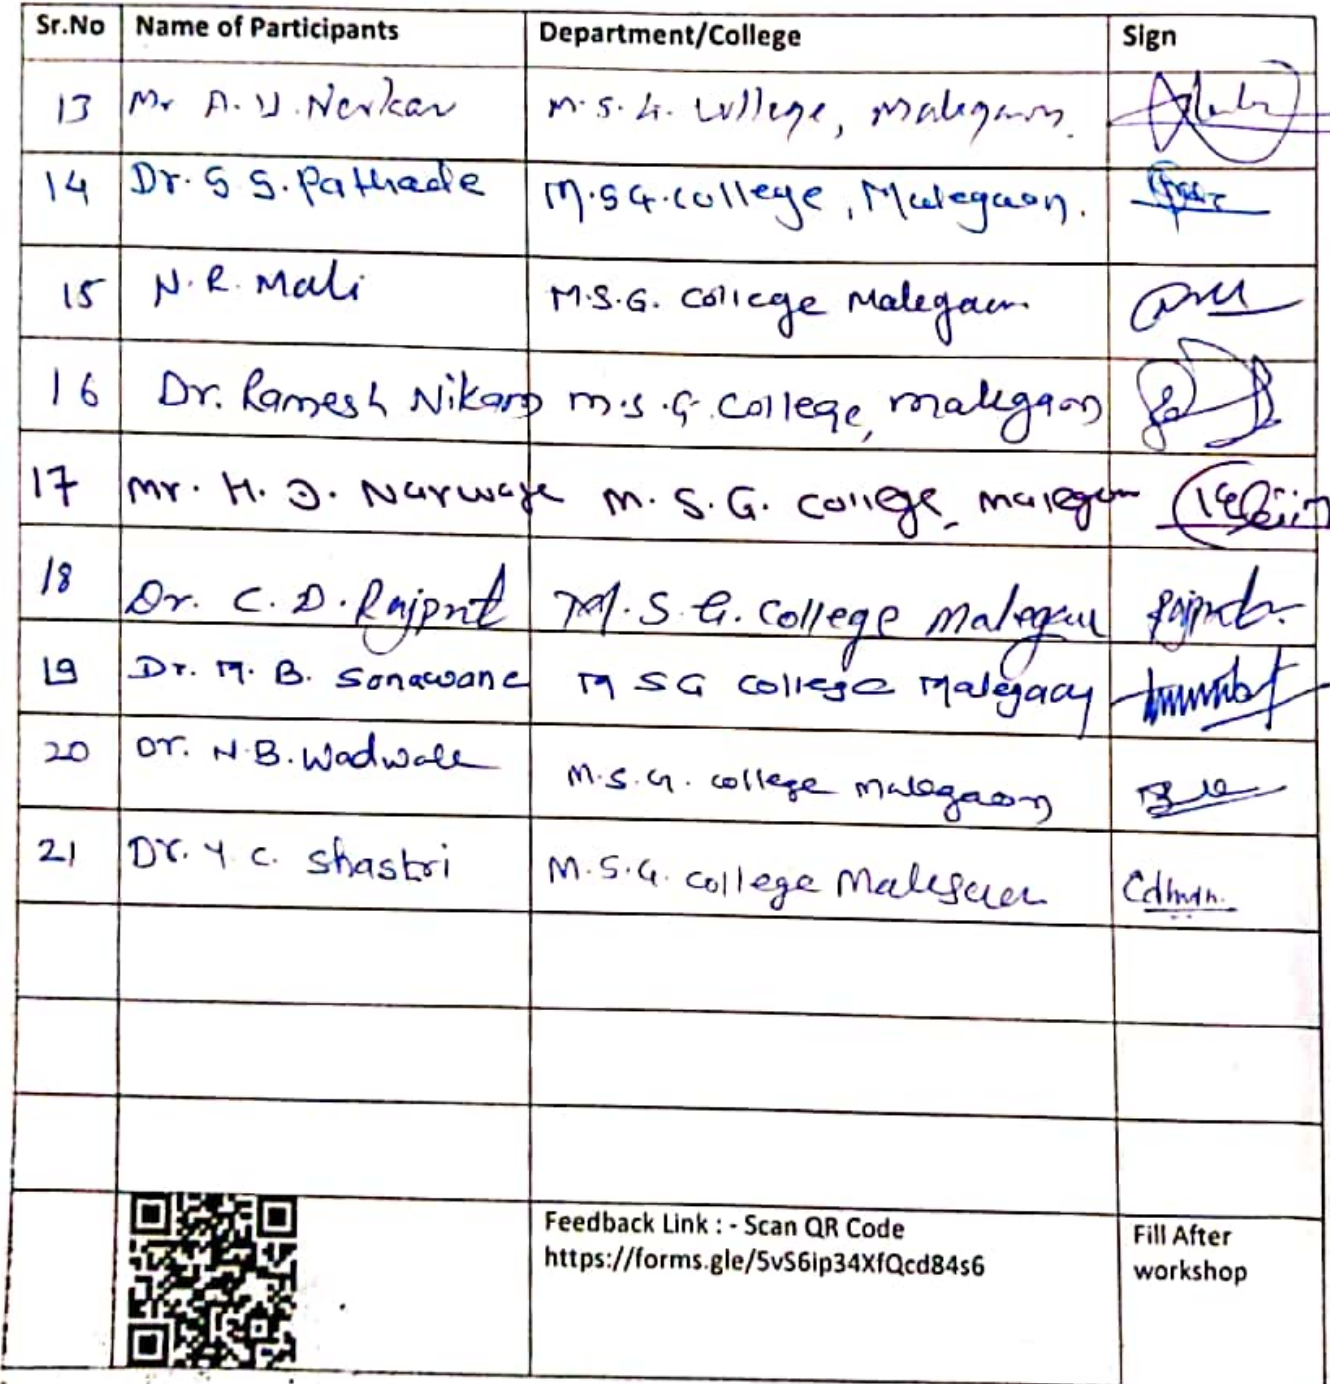 Sr.No Name of Participants Department/College Sign
13 Mr A. U. Nerkar M.S.G. College, Malegaon.
14 Dr. S S. Pathade M.S G. College, Malegaon.
15 N. R. Mali M.S.G. College Malegaon
16 Dr. Ramesh Nikam M.S.G. College, Malegaon
17 Mr. H. D. Narwade M. S. G. College, Malegaon
18 Dr. C. D. Rajput M. S. G. College Malegaon Rajput
19 Dr. M. B. Sonawane M SG College Malegaon
20 Dr. N.B. Wadwale M.S.G. College Malegaon
21 Dr. Y C. Shastri M.S.G. College Malegaon
Feedback Link : - Scan QR Code Fill After
https://forms.gle/5vS6ip34XfQcd84s6 workshop